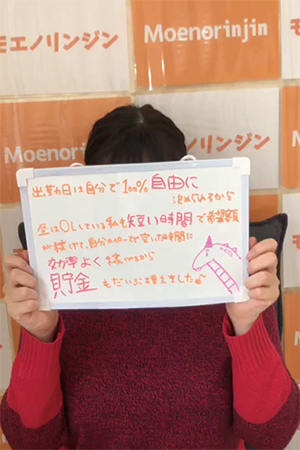 Moenorinjin
モエノリンジン
Moenorinjin
出勤日は自分で100%自由に
決められるから
昼はOLしている私も短い時間で希望額
が稼げて、自分のペースで空いた時間に
効率よく稼げるから
貯金もだいぶ増えました